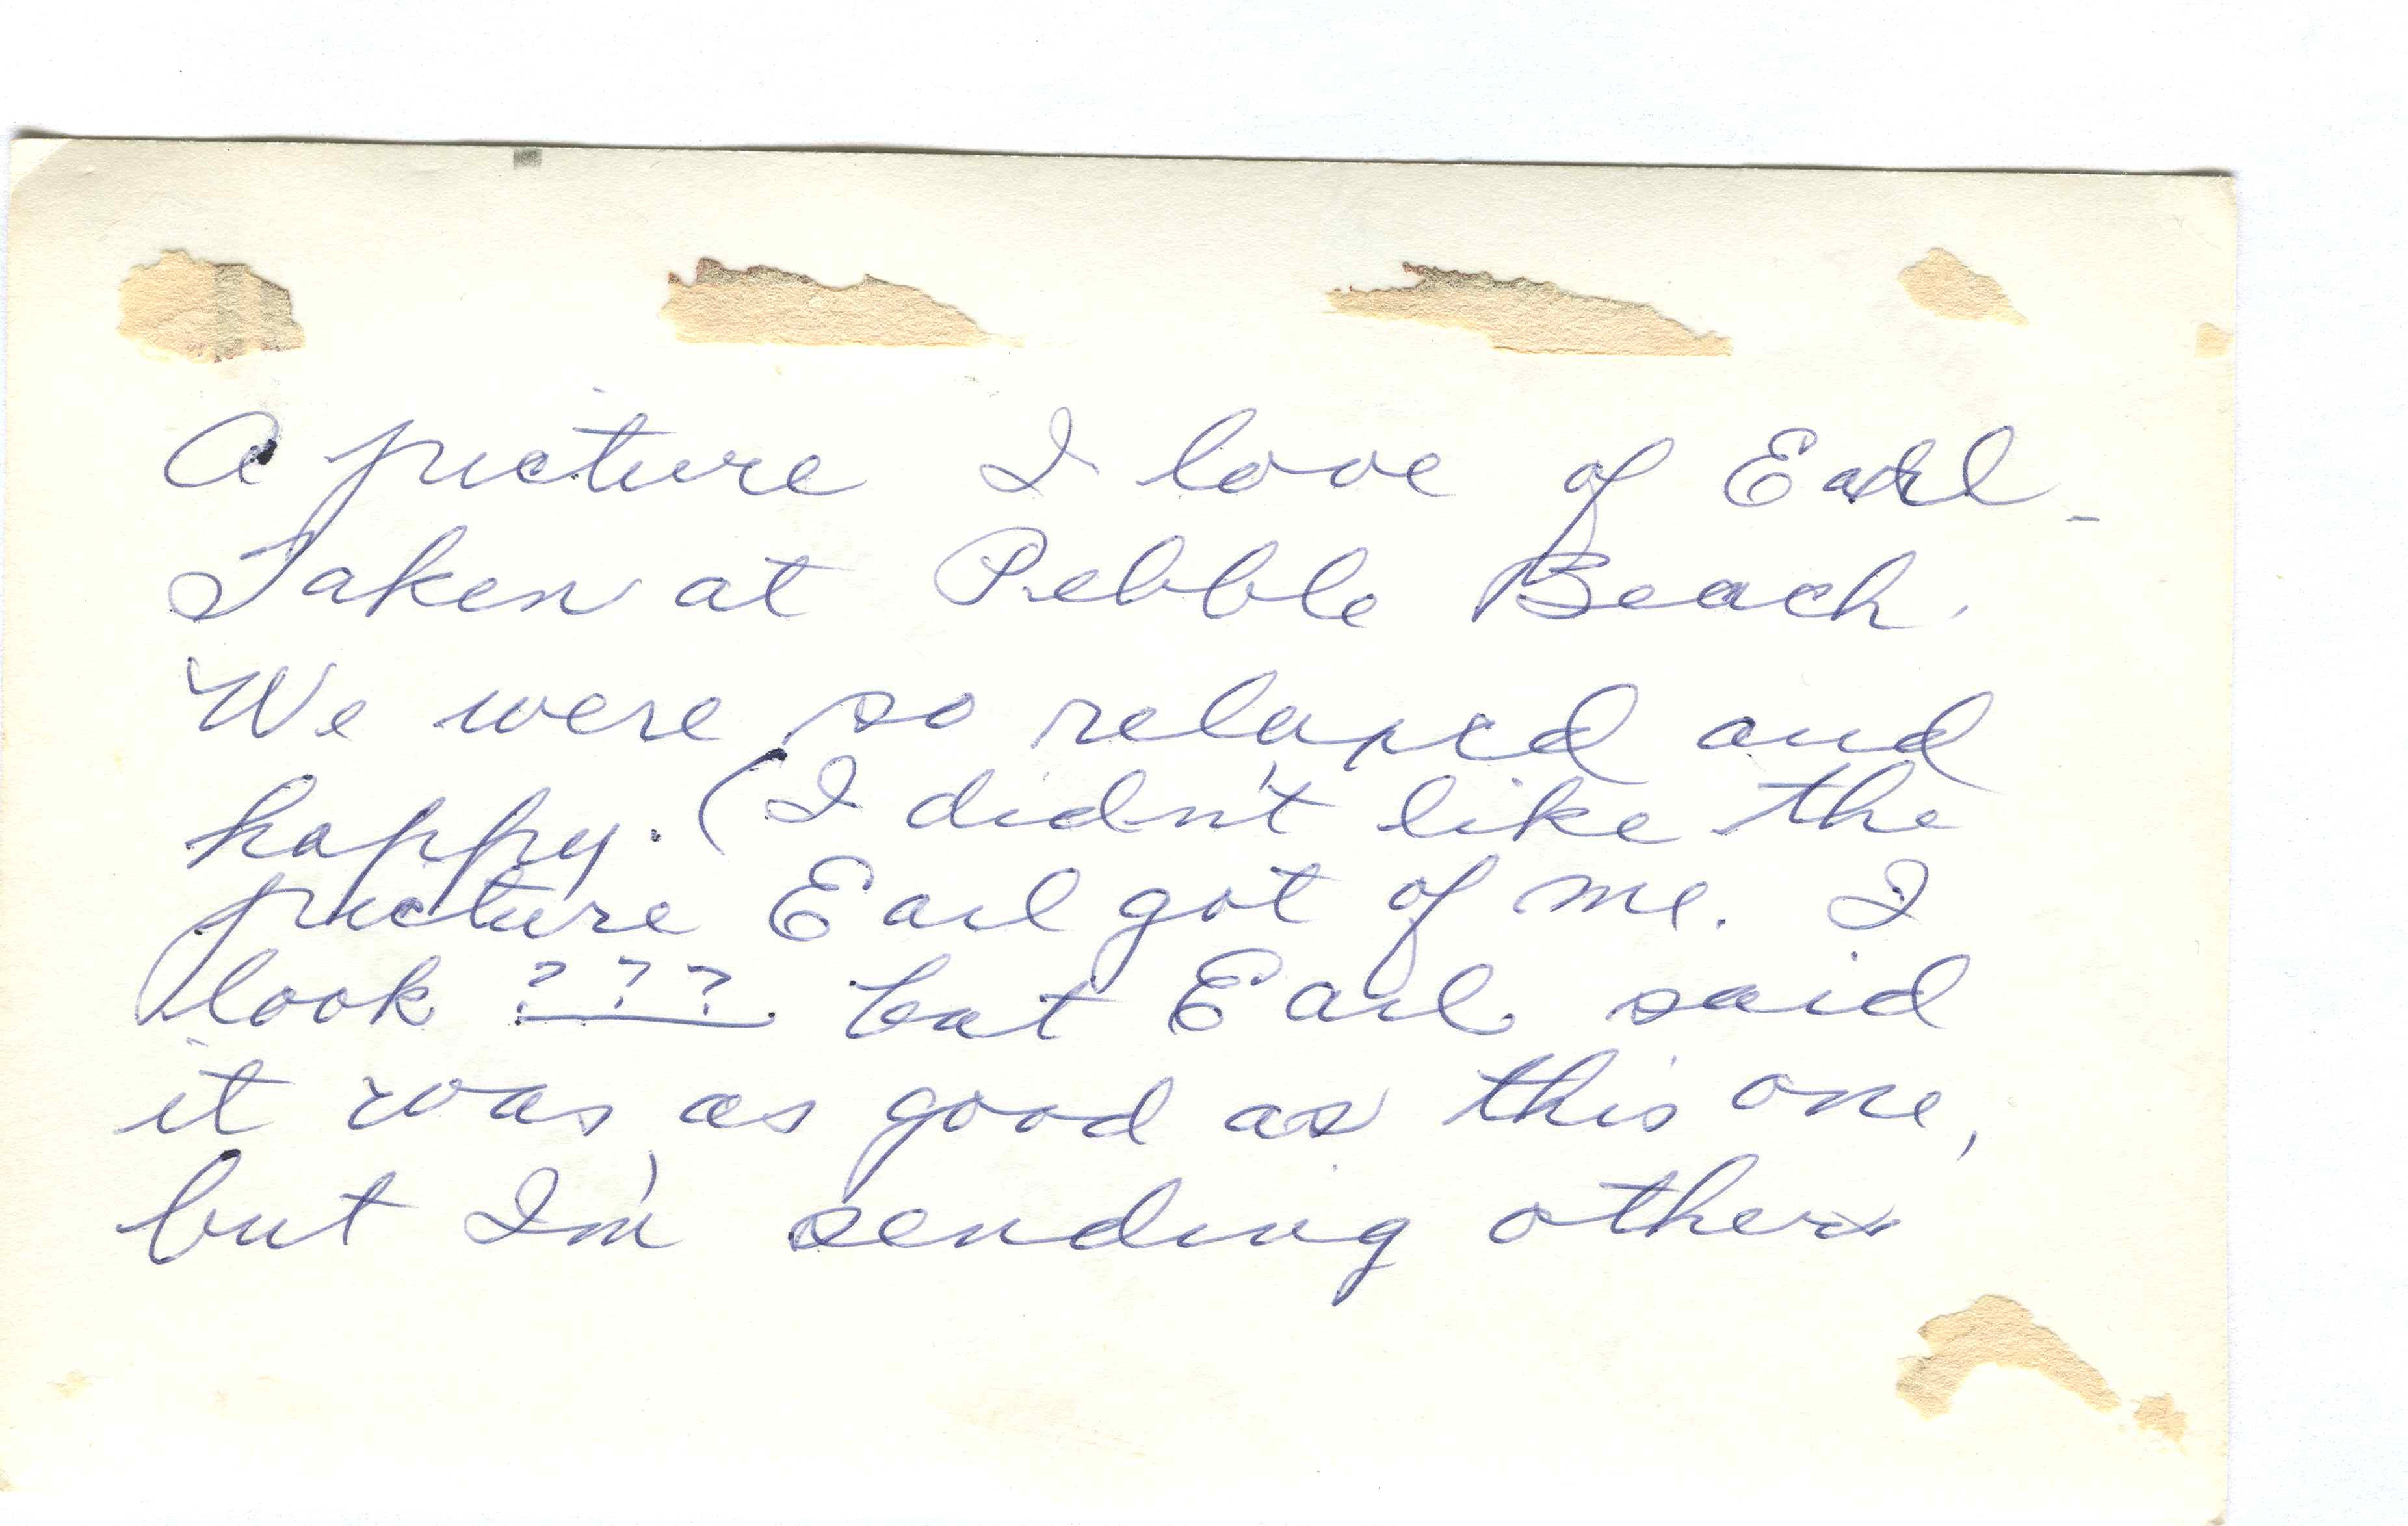 A picture I love of Earl -
Taken at Pebble Beach.
We were so relaxed and
happy. (I didn't like the
picture Earl got of me. I
look ??? but Earl said
it was as good as this one,
but I'm sending others